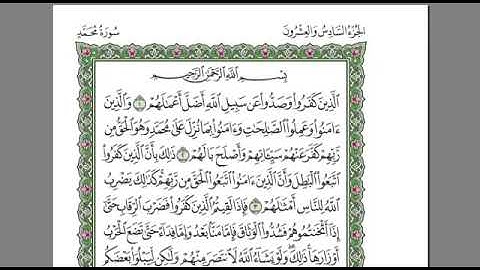 الجُزْءُ السَّادِسُ وَالعِشْرُونَ
سُورَةُ مُحَمَّدٍ
بِسْمِ اللَّهِ الرَّحْمَٰنِ الرَّحِيمِ
الَّذِينَ كَفَرُوا وَصَدُّوا عَن سَبِيلِ اللَّهِ أَضَلَّ أَعْمَٰلَهُمْ ١ وَالَّذِينَ
ءَامَنُوا وَعَمِلُوا الصَّٰلِحَٰتِ وَءَامَنُوا بِمَا نُزِّلَ عَلَىٰ مُحَمَّدٍ وَهُوَ الْحَقُّ مِن
رَّبِّهِمْ كَفَّرَ عَنْهُمْ سَيِّـَٔاتِهِمْ وَأَصْلَحَ بَالَهُمْ ٢ ذَٰلِكَ بِأَنَّ الَّذِينَ كَفَرُوا
اتَّبَعُوا الْبَٰطِلَ وَأَنَّ الَّذِينَ ءَامَنُوا اتَّبَعُوا الْحَقَّ مِن رَّبِّهِمْ كَذَٰلِكَ يَضْرِبُ
اللَّهُ لِلنَّاسِ أَمْثَٰلَهُمْ ٣ فَإِذَا لَقِيتُمُ الَّذِينَ كَفَرُوا فَضَرْبَ الرِّقَابِ حَتَّىٰ
إِذَا أَثْخَنتُمُوهُمْ فَشُدُّوا الْوَثَاقَ فَإِمَّا مَنًّا بَعْدُ وَإِمَّا فِدَاءً حَتَّىٰ تَضَعَ الْحَرْبُ
أَوْزَارَهَا ذَٰلِكَ وَلَوْ يَشَاءُ اللَّهُ لَانتَصَرَ مِنْهُمْ وَلَٰكِن لِّيَبْلُوَا بَعْضَكُم